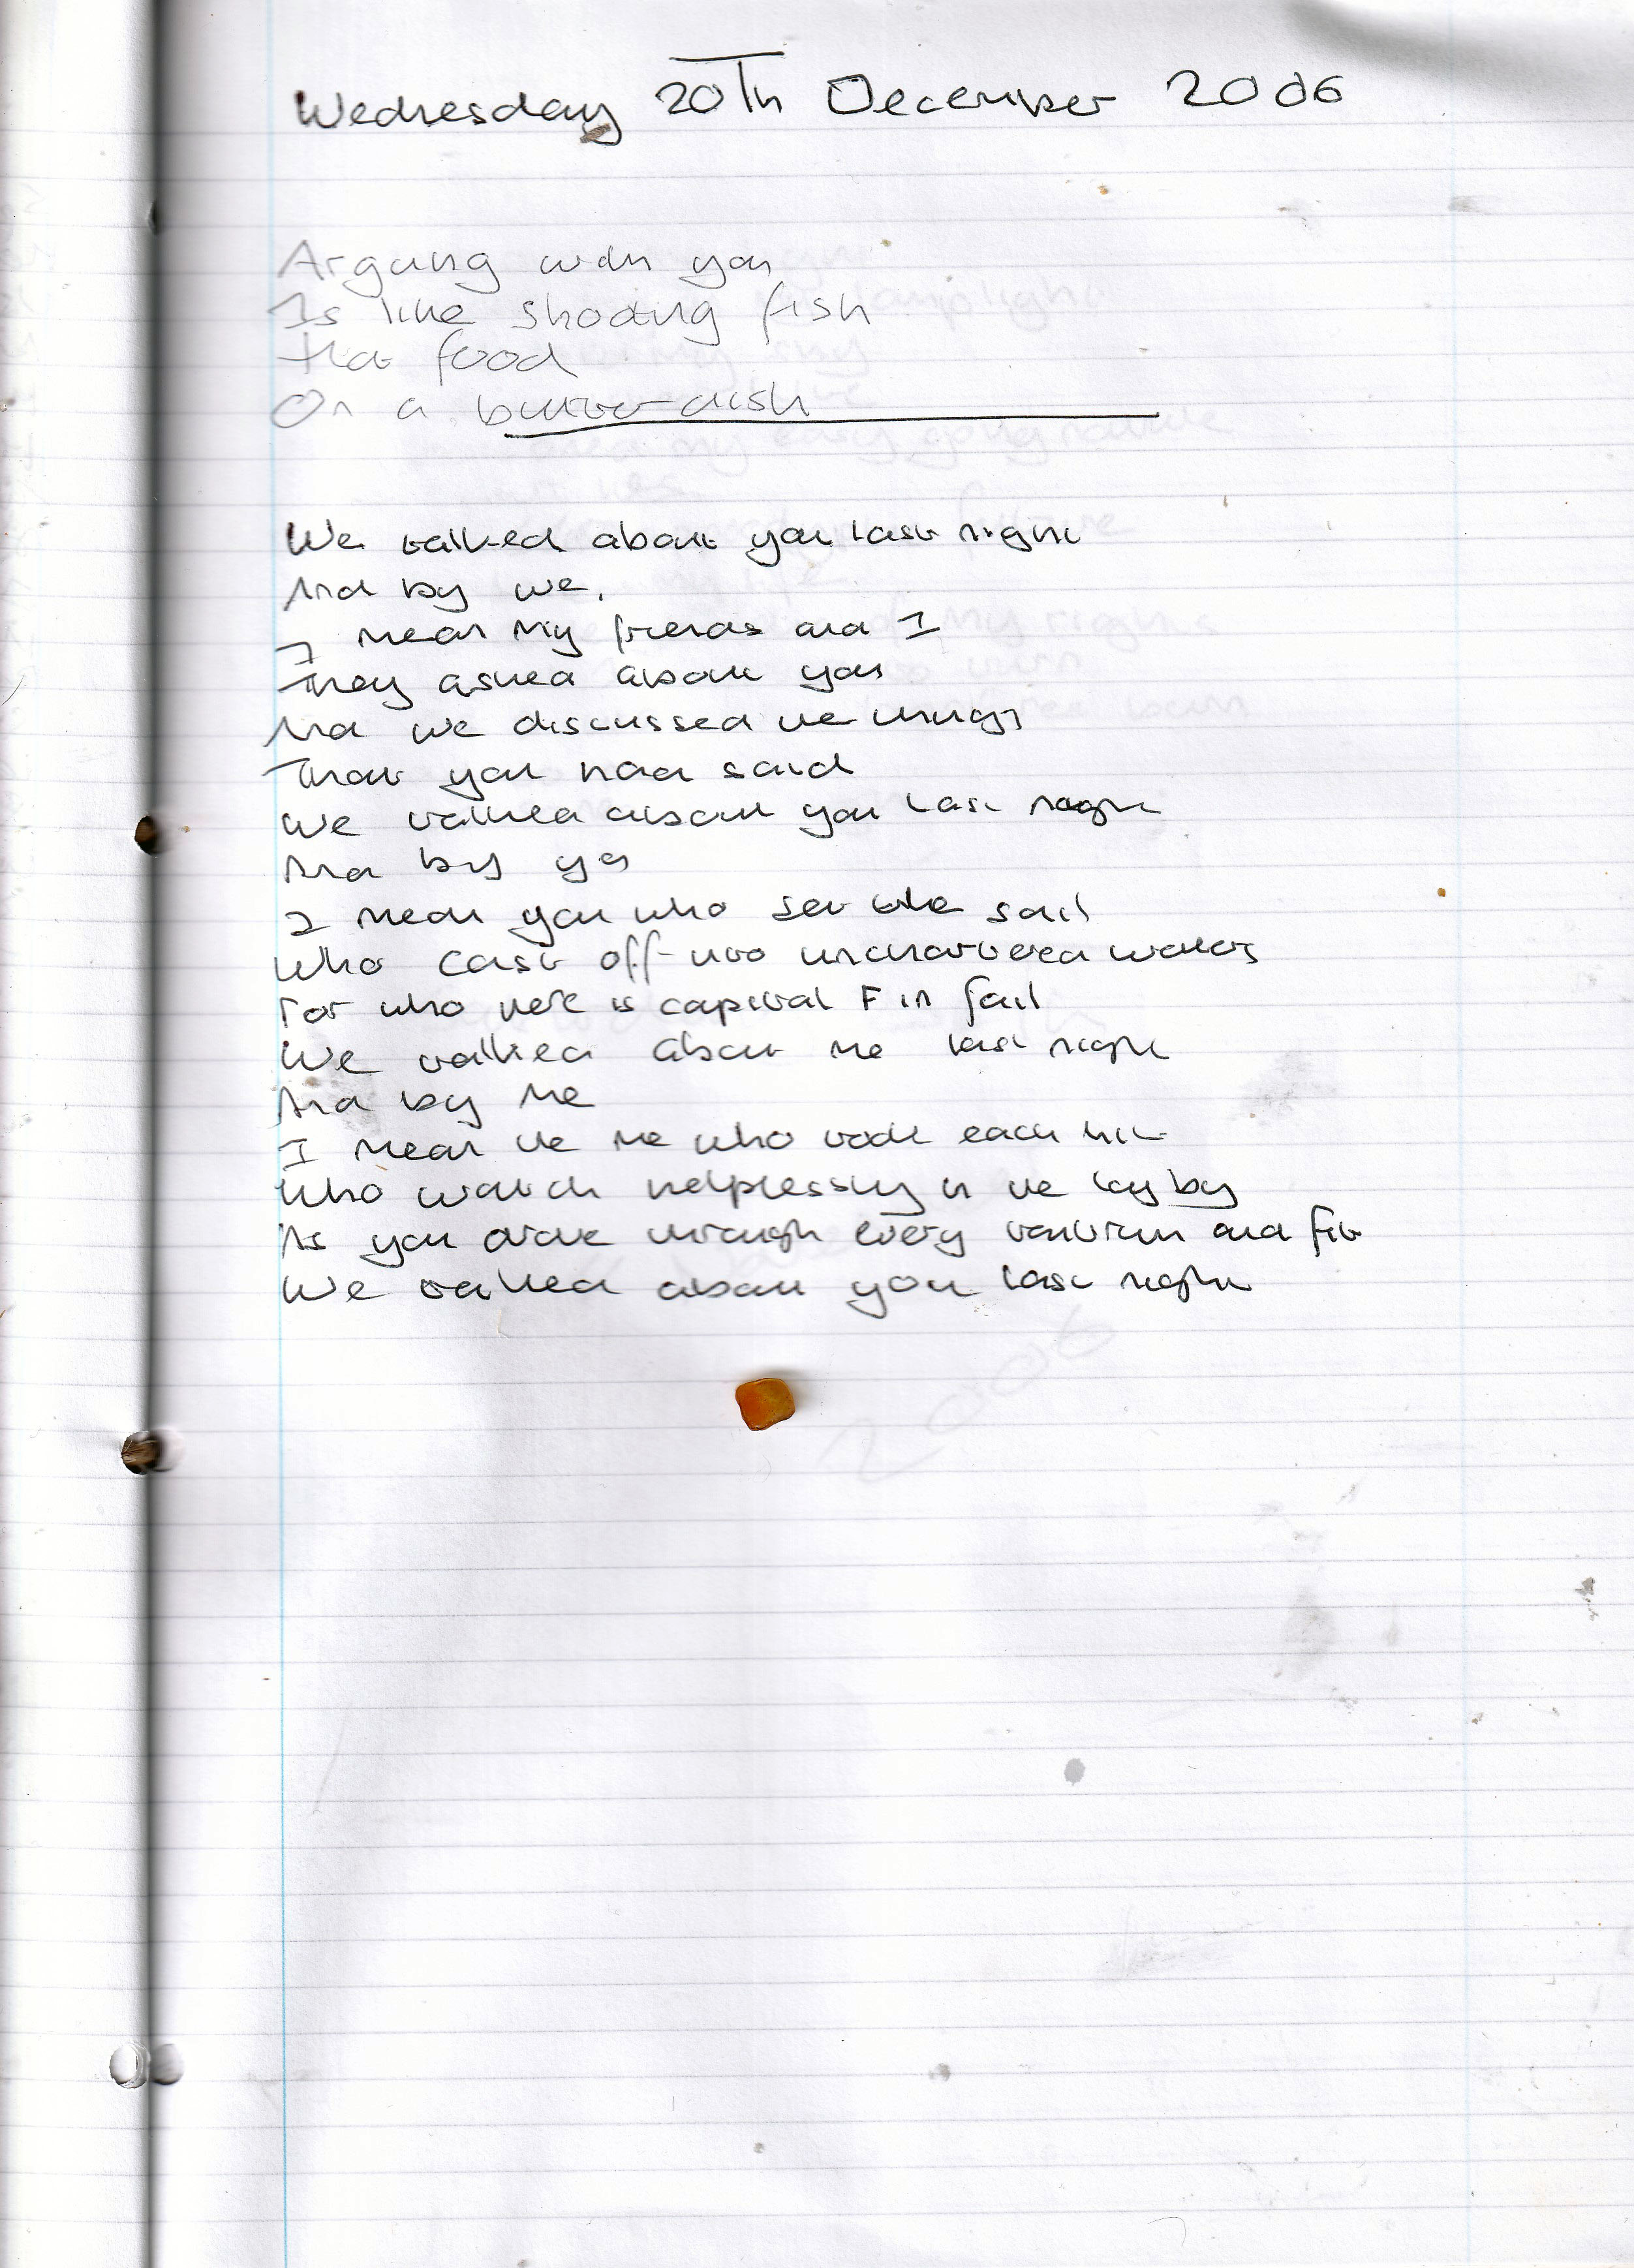 Wednesday 20Th December 2006
Arguing with you
Is like shooting fish
food
On a butter dish
We talked about you last night
And by we,
I mean my friends and I
They asked about you
And we discussed the things
That you had said
We talked about you last night
And by you
I mean you who set the sail
Who cast off into unchartered waters
For who there is capital F in fail
We talked about me last night
And by me
I mean the me who took each hit
Who watch helplessly in the lay by
As you drove through every tantrum and fit
We talked about you last night
2006